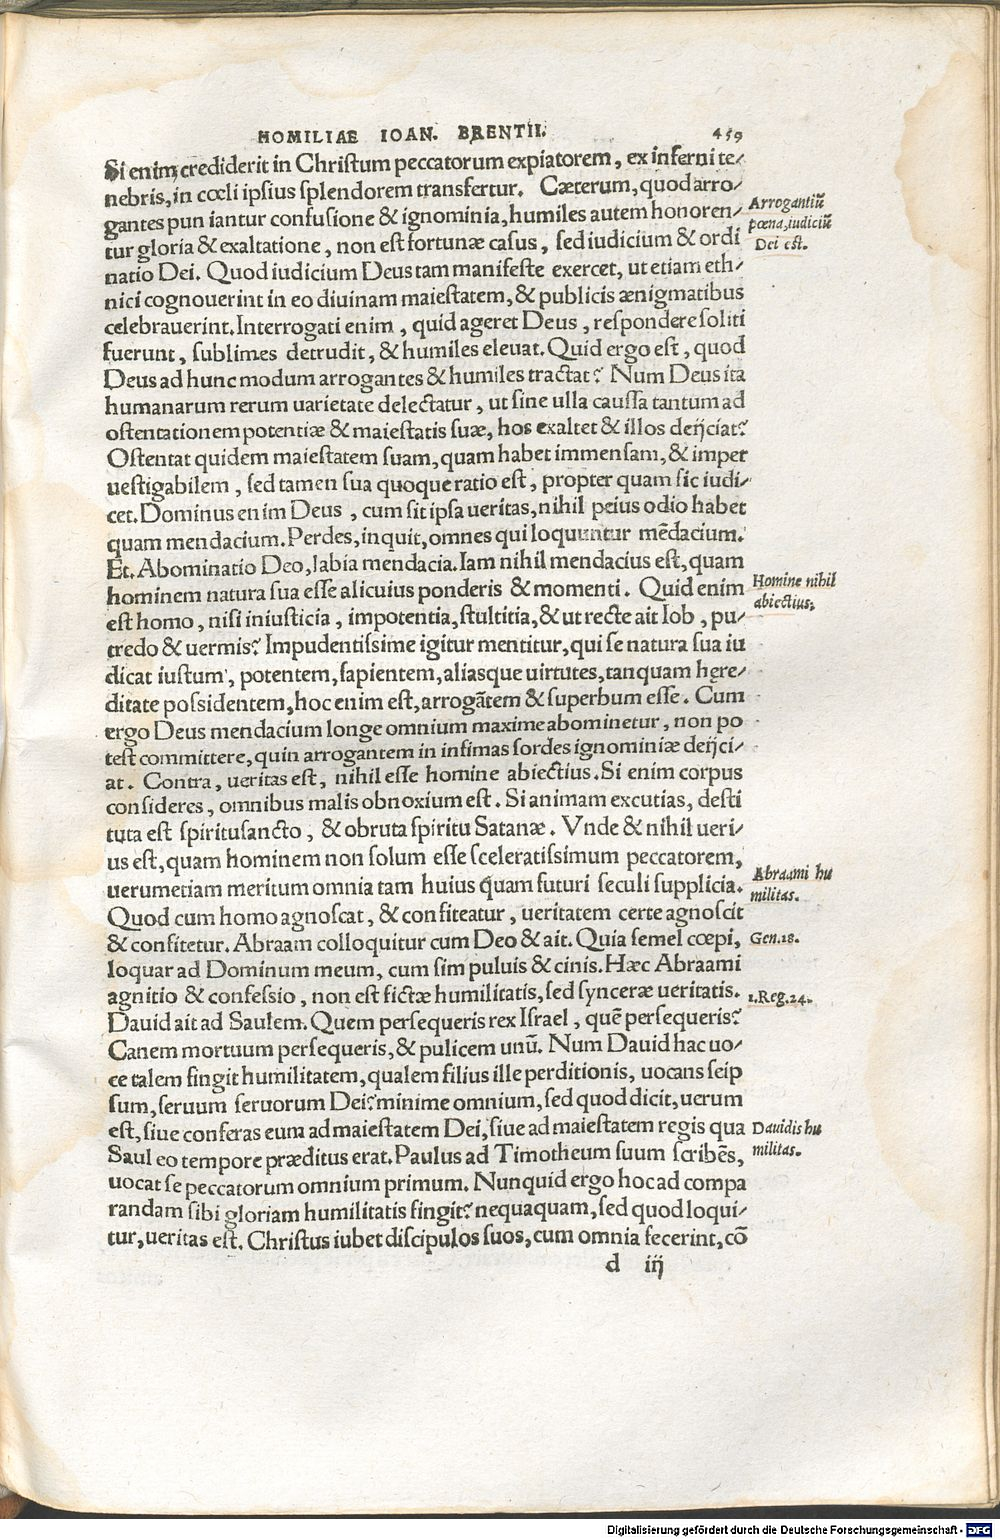 HOMILIAE IOAN. BRENTII. 459
Si enim crediderit in Christum peccatorum expiatorem, ex inferni te⸗
nebris, in cœli ipsius splendorem transfertur. Cæterum, quod arro⸗
gantes pun iantur confusione & ignominia, humiles autem honoren⸗
tur gloria & exaltatione, non est fortunæ casus, sed iudicium & ordi
natio Dei. Quod iudicium Deus tam manifeste exercet, ut etiam eth⸗
nici cognouerint in eo diuinam maiestatem, & publicis ænigmatibus
celebrauerint. Interrogati enim, quid ageret Deus, respondere soliti
fuerunt, sublimes detrudit, & humiles eleuat. Quid ergo est, quod
Deus ad hunc modum arrogantes & humiles tractat? Num Deus ita
humanarum rerum uarietate delectatur, ut sine ulla caussa tantum ad
ostentationem potentiæ & maiestatis suæ, hos exaltet & illos deijciat?
Ostentat quidem maiestatem suam, quam habet immensam, & imper
uestigabilem, sed tamen sua quoque ratio est, propter quam sic iudi⸗
cet. Dominus enim Deus, cum sit ipsa ueritas, nihil peius odio habet
quam mendacium. Perdes, inquit, omnes qui loquuntur mēdacium.
Et. Abominatio Deo, labia mendacia. Iam nihil mendacius est, quam
hominem natura sua esse alicuius ponderis & momenti. Quid enim
est homo, nisi iniusticia, impotentia, stultitia, & ut recte ait Iob, pu⸗
tredo & uermis? Impudentissime igitur mentitur, qui se natura sua iu
dicat iustum, potentem, sapientem, aliasque uirtutes, tanquam hęre⸗
ditate possidentem, hoc enim est, arrogātem & superbum esse. Cum
ergo Deus mendacium longe omnium maxime abominetur, non po
test committere, quin arrogantem in infimas sordes ignominiæ deijci⸗
at. Contra, ueritas est, nihil esse homine abiectius. Si enim corpus
consideres, omnibus malis obnoxium est. Si animam excutias, desti
tuta est spiritusancto, & obruta spiritu Satanæ. Vnde & nihil ueri⸗
us est, quam hominem non solum esse sceleratissimum peccatorem,
uerumetiam meritum omnia tam huius quam futuri seculi supplicia.
Quod cum homo agnoscat, & confiteatur, ueritatem certe agnoscit
& confitetur. Abraam colloquitur cum Deo & ait. Quia semel cœpi,
loquar ad Dominum meum, cum sim puluis & cinis. Hæc Abraami
agnitio & confessio, non est fictæ humilitatis, sed synceræ ueritatis.
Dauid ait ad Saulem. Quem persequeris rex Israel, quē persequeris?
Canem mortuum persequeris, & pulicem unū. Num Dauid hac uo⸗
ce talem fingit humilitatem, qualem filius ille perditionis, uocans seip
sum, seruum seruorum Dei? minime omnium, sed quod dicit, uerum
est, siue conferas eum ad maiestatem Dei, siue ad maiestatem regis qua
Saul eo tempore præditus erat. Paulus ad Timotheum suum scribēs,
uocat se peccatorum omnium primum. Nunquid ergo hoc ad compa
randam sibi gloriam humilitatis fingit? nequaquam, sed quod loqui⸗
tur, ueritas est. Christus iubet discipulos suos, cum omnia fecerint, cō
d iij
Arrogantiū
pœna, iudiciū
Dei est.
Homine nihil
abiectius.
Abraami hu
militas.
Gen.18.
1.Reg.24.
Dauidis hu
militas.
Digitalisierung gefördert durch die Deutsche Forschungsgemeinschaft - DFG